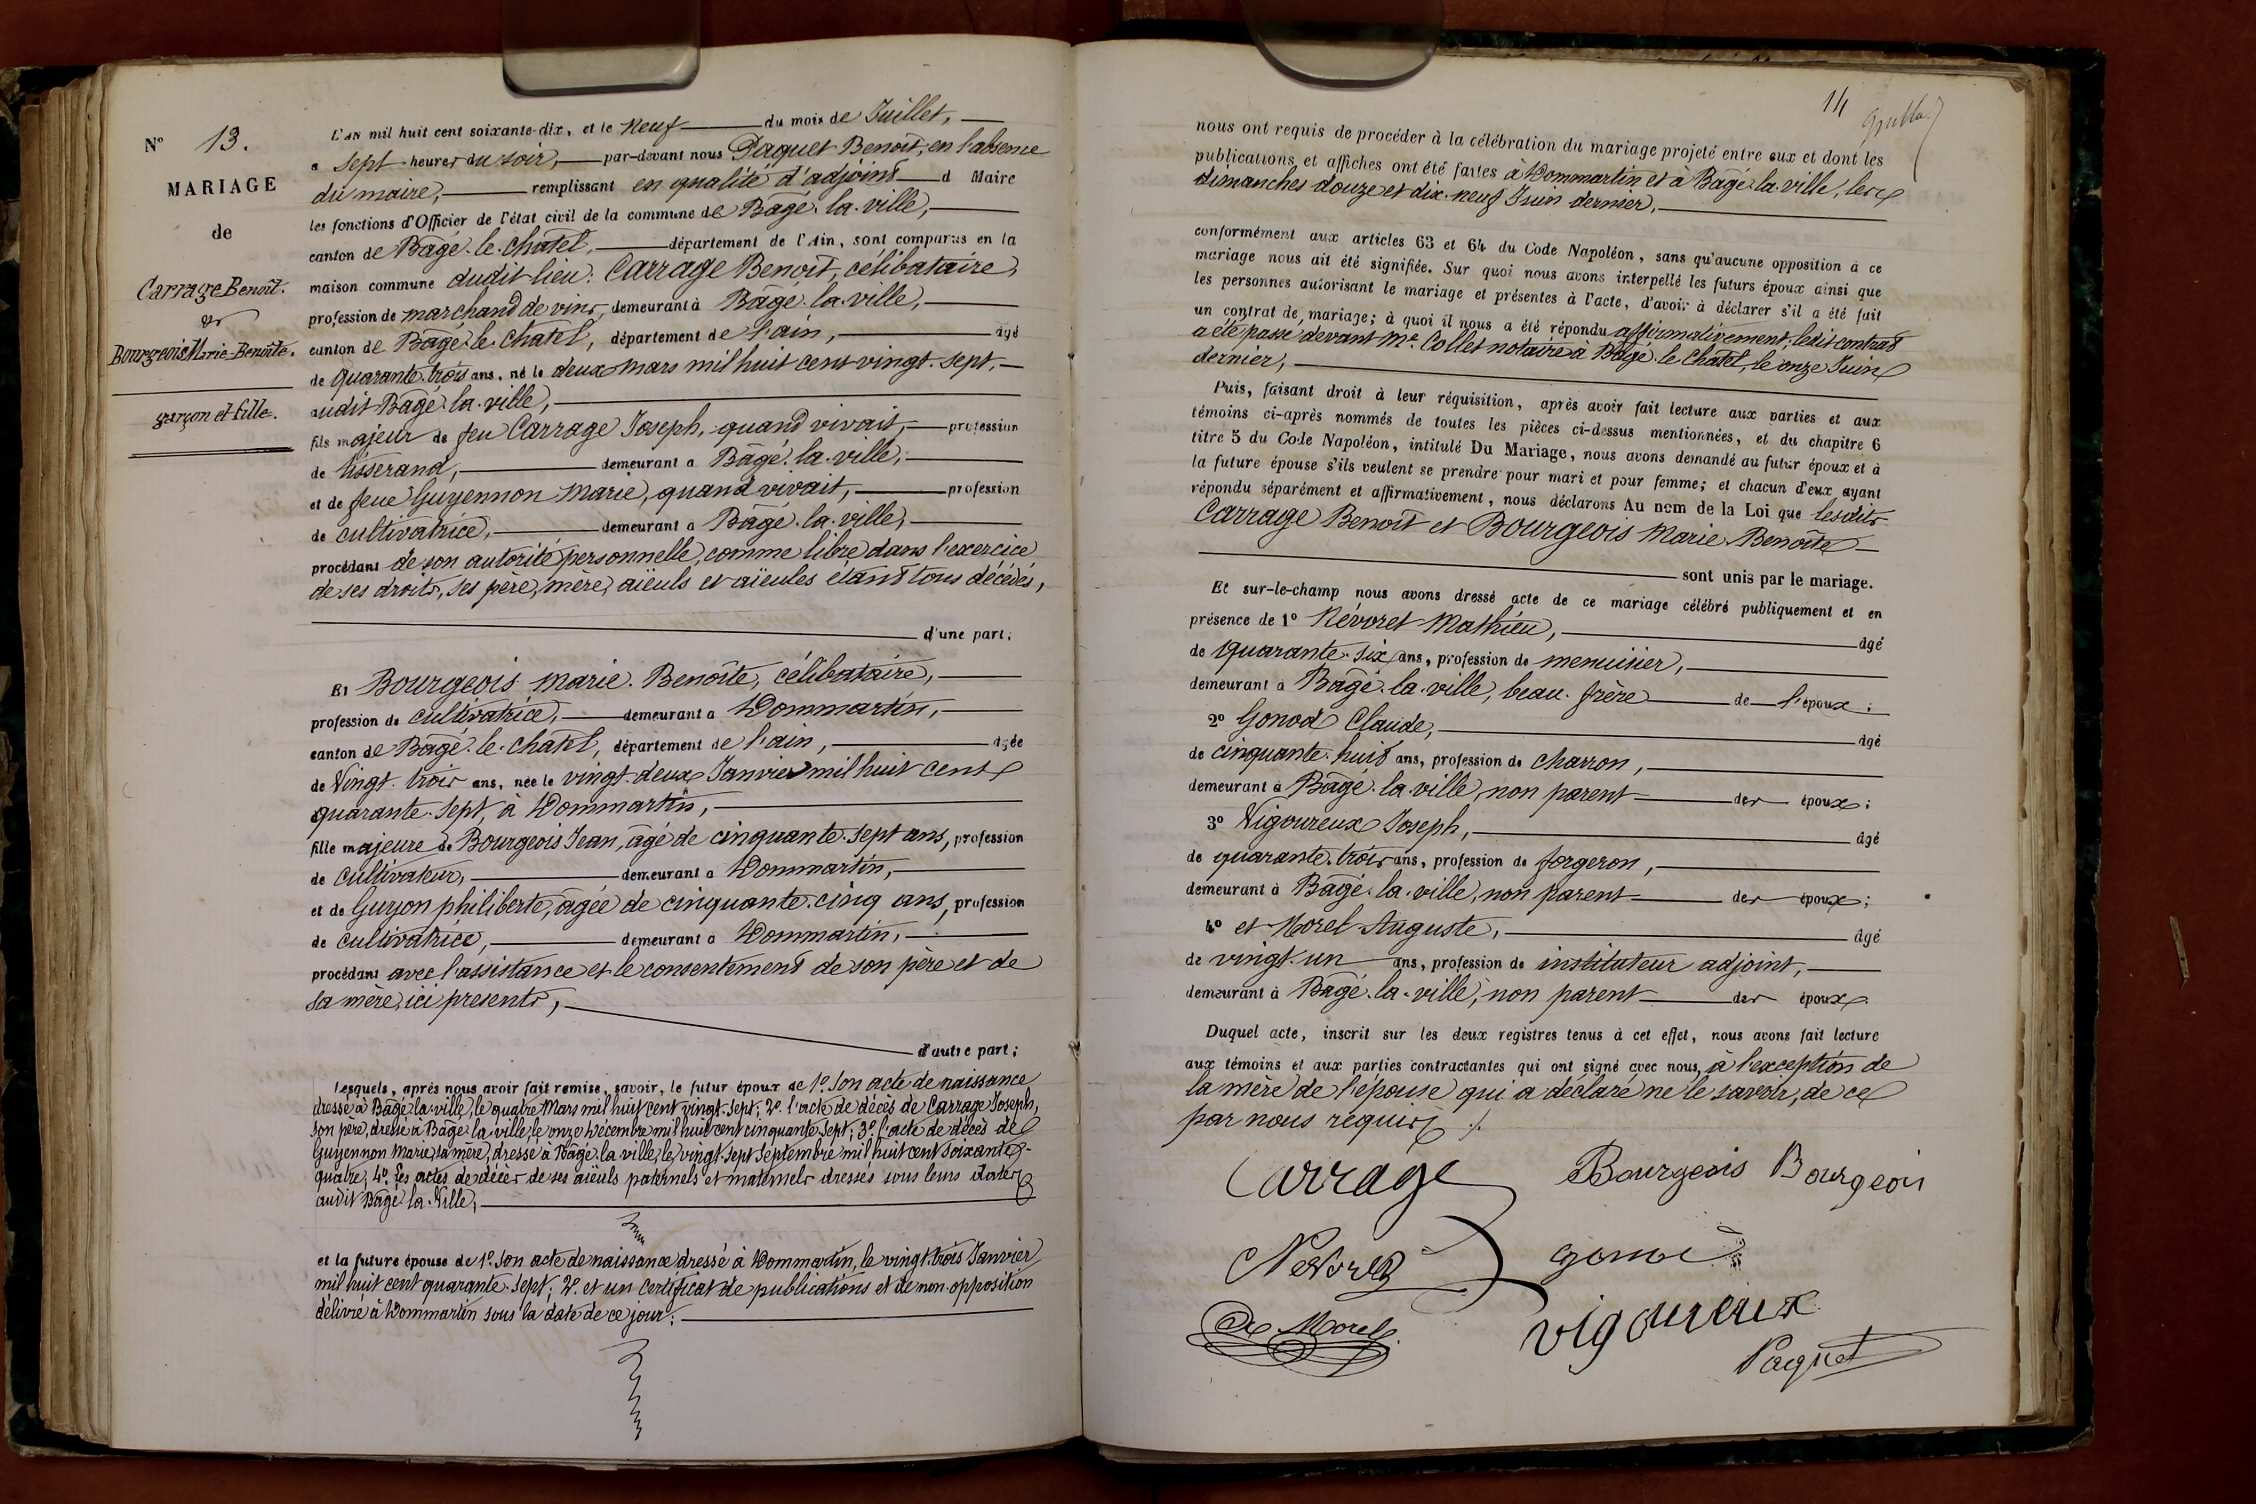 N° 13.
MARIAGE
de
Carrage Benoît.
et
Bourgeois Marie-Benoîte.
garçon et fille.
L'AN mil huit cent soixante-dix, et le neuf du mois de Juillet,
a sept heures du soir, par-devant nous Paquet Benoit, en l'absence
du maire, remplissant en qualité d'adjoint d Maire
les fonctions d'Officier de l'état civil de la commune de Bagé-la-ville,
canton de Bâgé-le-chatel, département de l'Ain, sont comparus en la
maison commune dudit lieu: Carrage Benoît, célibataire,
profession de marchand de vins, demeurant à Bâgé-la-ville,
canton de Bâgé-le-Chatel, département de l'ain, âgé
de quarante-trois ans, né le deux Mars mil huit cent vingt-sept,
audit Bâgé-la-ville,
fils majeur de feu Carrage Joseph, quand vivait, profession
de tisserand, demeurant a Bâgé-la-ville,
et de feue Guyennon Marie, quand vivait, profession
de cultivatrice, demeurant a Bâgé-la-ville,
procédant de son autorité personnelle, comme libre dans l'exercice
de ses droits, ses père, mère, aïeuls et aïeules étant tous décédés,
d'une part;
Et Bourgeois Marie-Benoîte, célibataire,
profession de cultivatrice, demeurant a Dommartin,
canton de Bâgé-le-chatel, département de l'ain, âgée
de Vingt-trois ans, née le vingt-deux Janvier mil huit cent
quarante-sept, à Dommartin,
fille majeure de Bourgeois Jean, âgé de cinquante-sept ans, profession
de cultivateur, demeurant a Dommartin,
et de Guyon philiberte, âgée de cinquante-cinq ans, profession
de cultivatrice, demeurant a Dommartin,
procédant avec l'assistance et le consentement de son père et de
sa mère, ici présents,
d'autre part;
Lesquels, après nous avoir fait remise, savoir, le futur époux de 1° son acte de naissance
dressé à Bâgé-la-ville, le quatre Mars mil huit cent vingt-sept; 2° l'acte de décès de Carrage Joseph,
son père, dressé à Bâgé-la-ville, le onze Décembre mil huit cent cinquante-sept; 3° l'acte de décès de
Guyennon Marie, sa mère, dressé à Bâgé-la-ville, le vingt-sept septembre mil huit cent soixante-
quatre; 4° les actes de décès de ses aïeuls paternels et maternels dressés sous leurs dates
audit Bâgé-la-Ville,
et la future épouse de 1° son acte de naissance dressé à Dommartin, le vingt-trois Janvier
mil huit cent quarante-sept; 2° et un certificat de publications et de non-opposition
délivré à Dommartin sous la date de ce jour;
14
nous ont requis de procéder à la célébration du mariage projeté entre eux et dont les
publications et affiches ont été faites à Dommartin et à Bâgé-la-ville, les
dimanches douze et dix-neuf Juin dernier,
conformément aux articles 63 et 64 du Code Napoléon, sans qu'aucune opposition à ce
mariage nous ait été signifiée. Sur quoi nous avons interpellé les futurs époux ainsi que
les personnes autorisant le mariage et présentes à l'acte, d'avoir à déclarer s'il a été fait
un contrat de mariage; à quoi il nous a été répondu affirmativement, ledit contrat
a été passé devant Me Collet notaire à Bâgé-le-Chatel, le onze Juin
dernier,
Puis, faisant droit à leur réquisition, après avoir fait lecture aux parties et aux
témoins ci-après nommés de toutes les pièces ci-dessus mentionnées, et du chapitre 6
titre 5 du Code Napoléon, intitulé Du Mariage, nous avons demandé au futur époux et à
la future épouse s'ils veulent se prendre pour mari et pour femme; et chacun d'eux ayant
répondu séparément et affirmativement, nous déclarons Au nom de la Loi que lesdits
Carrage Benoît et Bourgeois Marie-Benoîte
sont unis par le mariage.
Et sur-le-champ nous avons dressé acte de ce mariage célébré publiquement et en
présence de 1° Névoret Mathieu, âgé
de quarante-six ans, profession de menuisier,
demeurant à Bâgé-la-ville, beau-frère de l'époux;
2° Gonod Claude, âgé
de cinquante-huit ans, profession de charron,
demeurant à Bâgé-la-ville, non parent des époux;
3° Vigoureux Joseph, âgé
de quarante-trois ans, profession de forgeron,
demeurant à Bâgé-la-ville, non parent des époux;
4° et Morel Auguste, âgé
de vingt-un ans, profession de instituteur adjoint,
demeurant à Bâgé-la-ville, non parent des époux.
Duquel acte, inscrit sur les deux registres tenus à cet effet, nous avons fait lecture
aux témoins et aux parties contractantes qui ont signé avec nous, à l'exception de
la mère de l'épouse qui a déclaré ne le savoir, de ce
par nous requis ./.
Carrage Bourgeois Bourgeois
Nevoret gonod
Morel vigoureux
Paquet